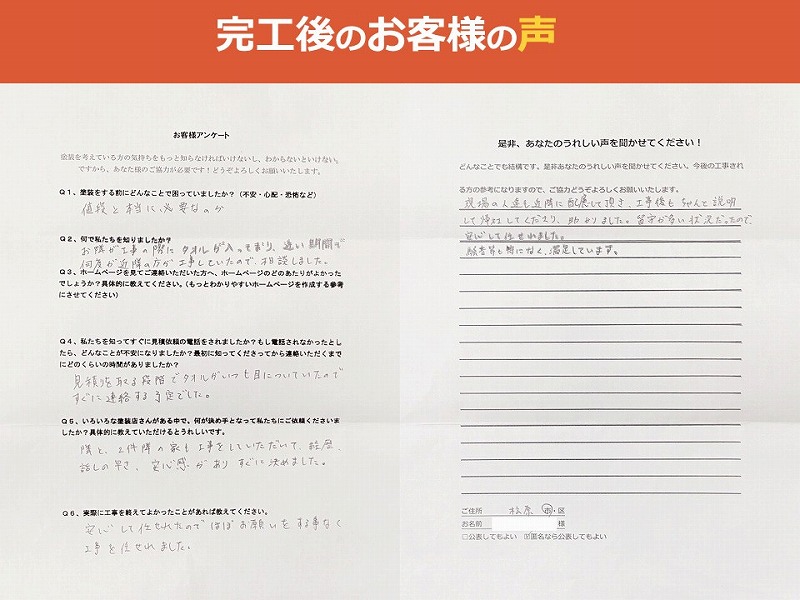 完工後のお客様の声
お客様アンケート
塗装を考えている方の気持ちをもっと知らなければいけないし、わからないといけない。
ですから、あなた様のご協力が必要です！どうぞよろしくお願いいたします。
Q１、塗装をする前にどんなことで困っていましたか？（不安・心配・恐怖など）
値段と本当に必要なのか
Q２、何で私たちを知りましたか？
お隣が工事の際にタオルが入っており、近い期間で
何度が近隣の方が工事していたので、相談しました。
Q３、ホームページを見てご連絡いただいた方へ、ホームページのどのあたりがよかった
でしょうか？具体的に教えてください。（もっとわかりやすいホームページを作成する参考
にさせてください）
Q４、私たちを知ってすぐに見積依頼の電話をされましたか？もし電話されなかったとし
たら、どんなことが不安になりましたか？最初に知ってくださってから連絡いただくまで
にどのくらいの時間がありましたか？
見積を取る段階でタオルがいつも目についていたので
すぐに連絡する予定でした。
Q５、いろいろな塗装店さんがある中で、何が決め手となって私たちにご依頼くださいま
したか？具体的に教えていただけるとうれしいです。
隣と、2件隣の家も工事をしていただいて、
話しの早さ、安心感がありすぐに決めました。
Q６、実際に工事を終えてよかったことがあれば教えてください。
安心して任せれたのでほぼお願いをする事なく
工事を任せれました。
是非、あなたのうれしい声を聞かせてください！
どんなことでも結構です。是非あなたのうれしい声を聞かせてください。今後の工事され
る方の参考になりますので、ご協力どうぞよろしくお願いいたします。
現場の人達も近隣に配慮して頂き、工事後もちゃんと説明
して対応してくださり、助かりました。留守が多い状況だったので
安心して任せれました。
総合等も特になく、満足しています。
ご住所 松原 市・区
お名前 様
□公表してもよい ☑匿名なら公表してもよい